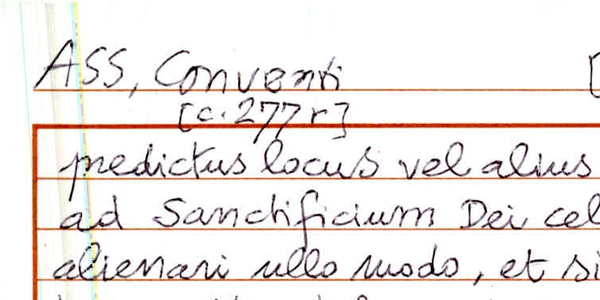 ASS, Conventi [
[c.277r]
predictus locus vel alius
ad Sanctificium Dei cel
alienari ullo modo, et si